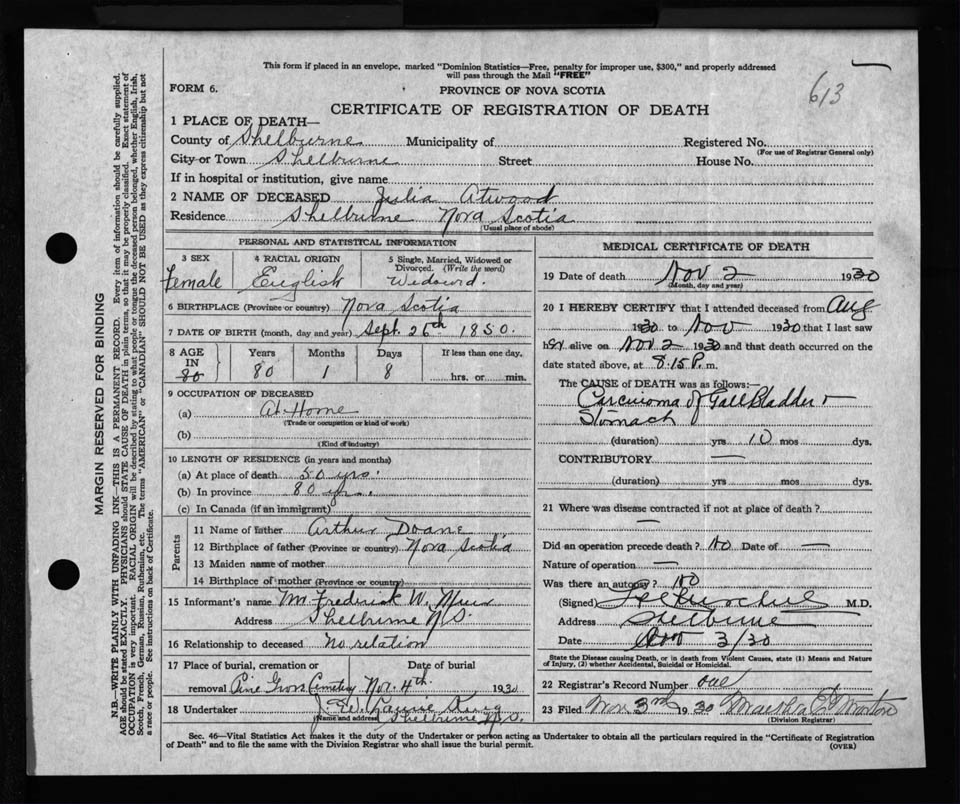 This form if placed in an envelope, marked "Dominion Statistics—Free, penalty for improper use, $300," and properly addressed
will pass through the Mail "FREE"
613
FORM 6.
PROVINCE OF NOVA SCOTIA
CERTIFICATE OF REGISTRATION OF DEATH
1 PLACE OF DEATH—
County of Shelburne Municipality of Registered No.
(For use of Registrar General only)
City or Town Shelburne Street House No.
If in hospital or institution, give name
2 NAME OF DECEASED Julia Atwood
Residence Shelburne Nova Scotia
(Usual place of abode)
PERSONAL AND STATISTICAL INFORMATION
3 SEX 4 RACIAL ORIGIN 5 Single, Married, Widowed or
Divorced. (Write the word)
Female English Widowd.
6 BIRTHPLACE (Province or country) Nova Scotia
7 DATE OF BIRTH (month, day and year) Sept. 26th 1850.
8 AGE Years Months Days If less than one day.
IN
80 80 1 8 hrs. or min.
9 OCCUPATION OF DECEASED
(a) At Home
(Trade or occupation or kind of work)
(b)
(Kind of industry)
10 LENGTH OF RESIDENCE (in years and months)
(a) At place of death 50 yrs.
(b) In province 80 yr.
(c) In Canada (if an immigrant)
Parents
11 Name of father Arthur Doane
12 Birthplace of father (Province or country) Nova Scotia
13 Maiden name of mother
14 Birthplace of mother (Province or country)
15 Informant's name Mr Frederick W.
Address Shelburne N.S.
16 Relationship to deceased No relation
17 Place of burial, cremation or Date of burial
removal Pine Grove Cemetery Nov. 4th 1930
18 Undertaker
(Name and address) Shelburne N.S.
MEDICAL CERTIFICATE OF DEATH
19 Date of death Nov 2 1930
(Month, day and year)
20 I HEREBY CERTIFY that I attended deceased from Aug
1930 to Nov 1930 that I last saw
her alive on Nov 2 1930 and that death occurred on the
date stated above, at 8.15 P. m.
The CAUSE of DEATH was as follows:
Carcinoma of Gall Bladder +
Stomach
(duration) yrs 10 mos dys.
CONTRIBUTORY —
(duration) yrs. mos. dys.
21 Where was disease contracted if not at place of death?
—
Did an operation precede death? No Date of —
Nature of operation —
Was there an autopsy? No
(Signed) M.D.
Address Shelburne
Date Nov 3/30
State the Disease causing Death, or in death from Violent Causes, state (1) Means and Nature
of Injury, (2) whether Accidental, Suicidal or Homicidal.
22 Registrar's Record Number one
23 Filed Nov 3rd 1930 Martha E Morton
(Division Registrar)
Sec. 46—Vital Statistics Act makes it the duty of the Undertaker or person acting as Undertaker to obtain all the particulars required in the "Certificate of Registration
of Death" and to file the same with the Division Registrar who shall issue the burial permit. (OVER)
MARGIN RESERVED FOR BINDING
N.B.—WRITE PLAINLY WITH UNFADING INK—THIS IS A PERMANENT RECORD. Every item of information should be carefully supplied.
AGE should be stated EXACTLY. PHYSICIANS should STATE CAUSE OF DEATH in plain terms, so that it may be properly classified. Exact statement of
OCCUPATION is very important. RACIAL ORIGIN will be described by stating to what people or tongue the deceased person belonged, whether English, Irish,
Scotch, French, German, Russian, Ruthenian, etc. The terms "AMERICAN" or "CANADIAN" SHOULD NOT BE USED as they express citizenship but not
a race or people. See instructions on back of Certificate.